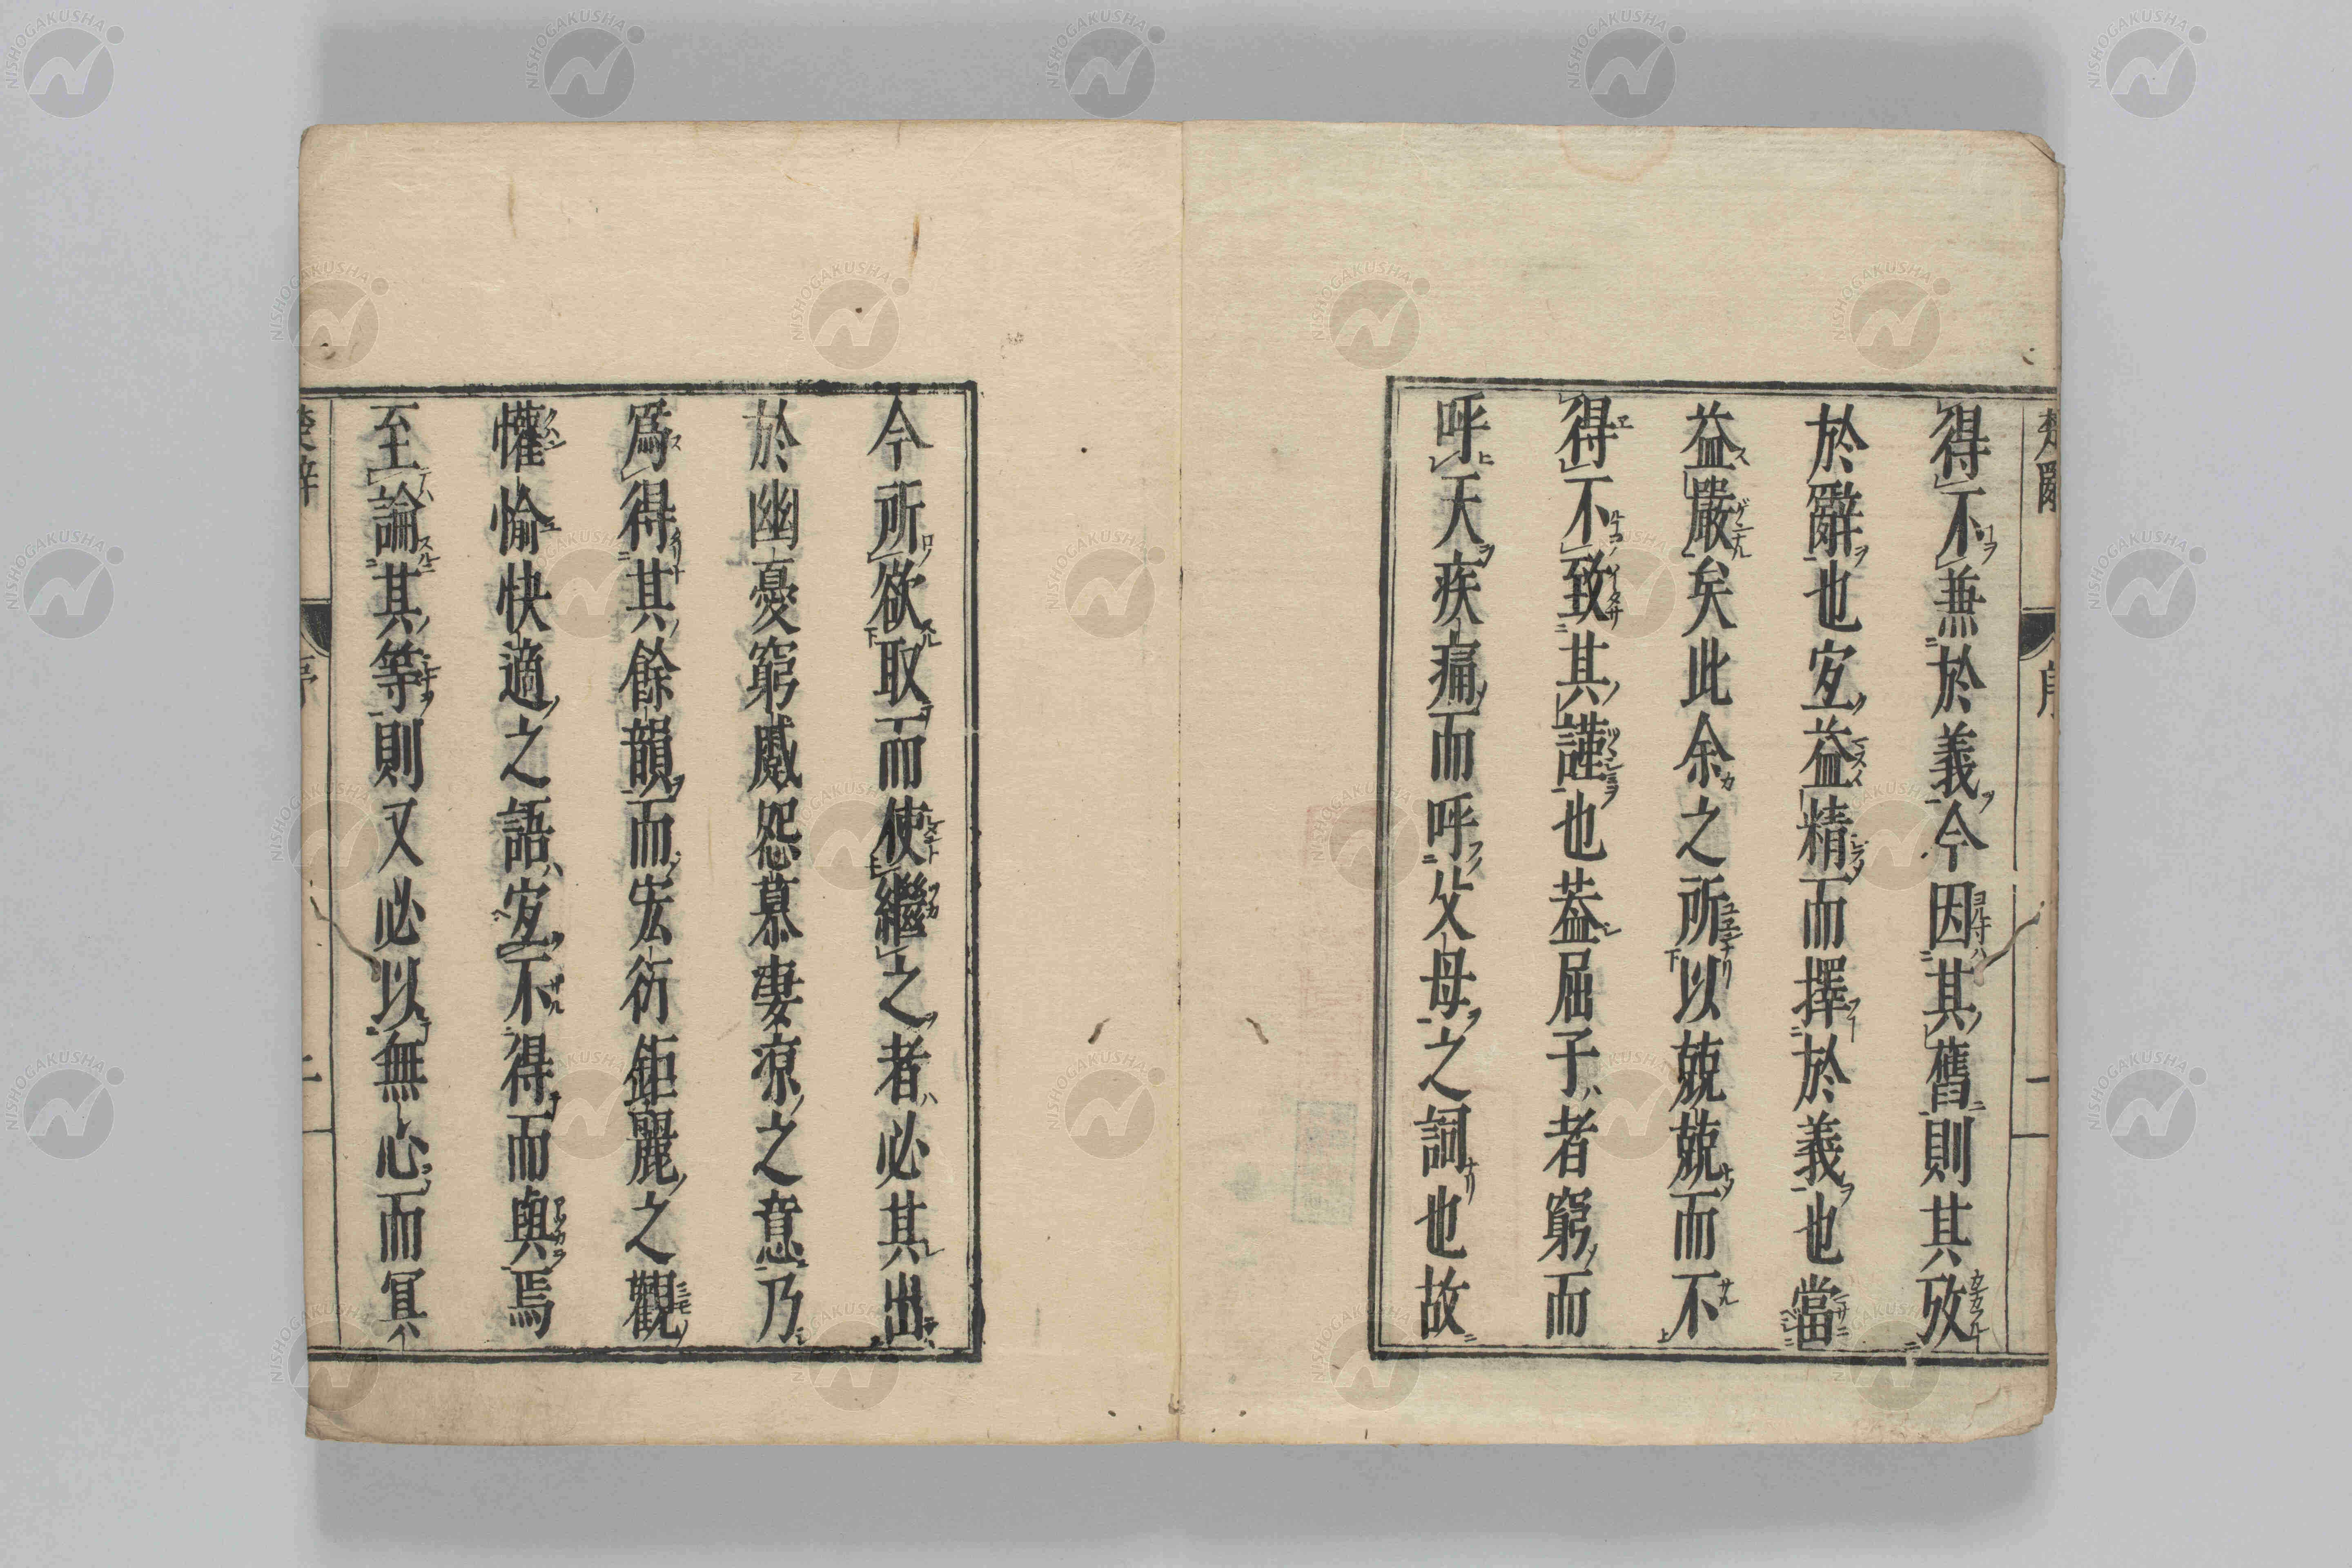 得不兼於義今因其舊則其攷
於辭也宐益精而擇於義也當
益嚴矣此余之所以兢兢而不
得不致其謹也蓋屈子者窮而
呼天疾痛而呼父母之詞也故
今所欲取而使繼之者必其出
於幽憂窮戚怨慕凄凉之意乃
爲得其餘韻而宏衍鉅麗之觀
懽愉快適之語宐不得而與焉
至論其等則又必以無心而冥
NISHOGAKUSHA